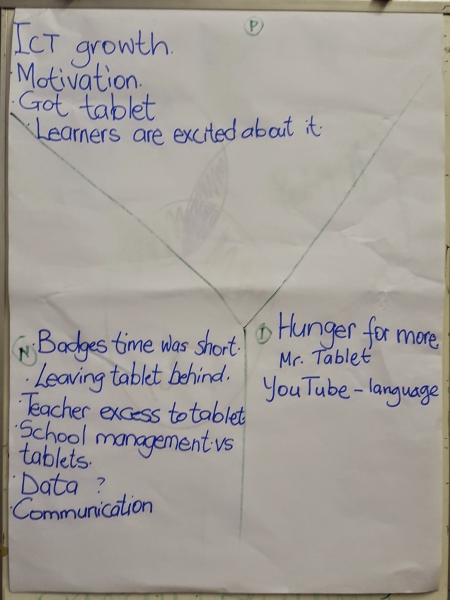 P
ICT growth.
· Motivation.
· Got tablet
· Learners are excited about it.
N
· Badges time was short.
· Leaving tablet behind.
Teacher excess to tablet
· School management vs
tablets.
· Data ?
· Communication
I
Hunger for more
Mr. Tablet
YouTube - language